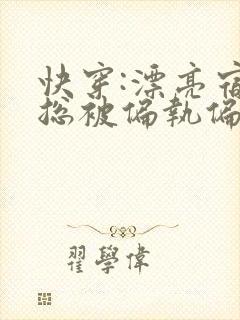 快穿:漂亮宿
总被偏執偏
翟學偉